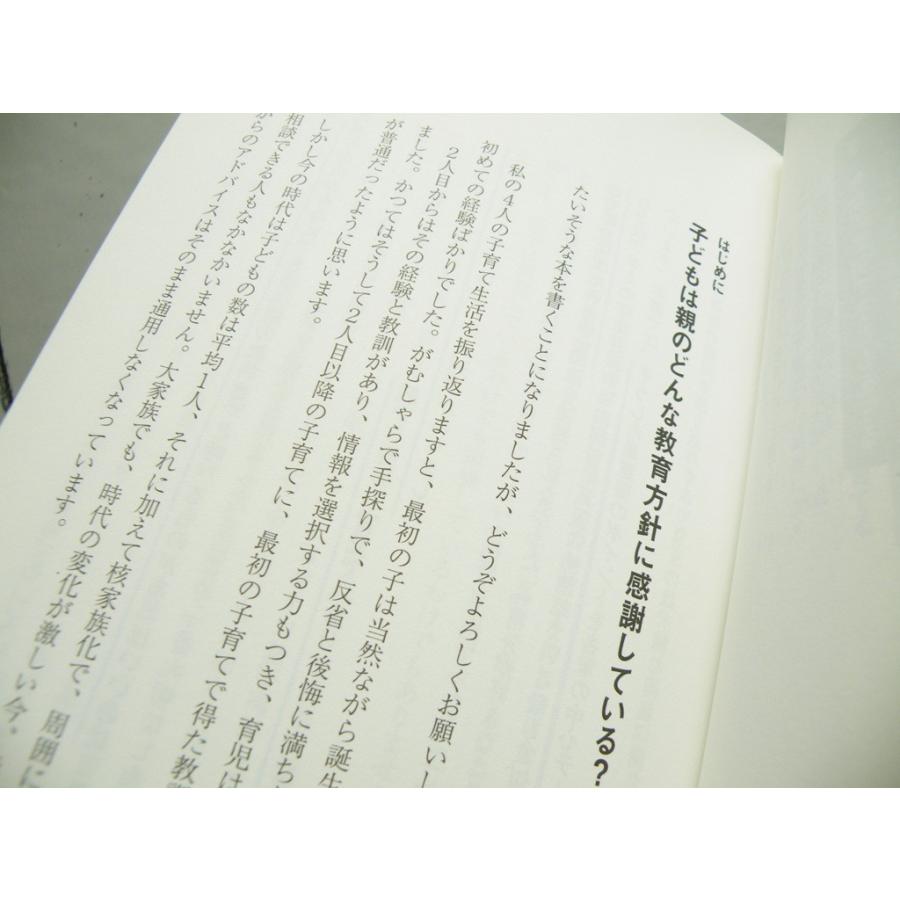 はじめに
子どもは親のどんな教育方針に感謝している？
たいそうな本を書くことになりましたが、どうぞよろしくお願いし
私の４人の子育て生活を振り返りますと、最初の子は当然ながら誕生
初めての経験ばかりでした。がむしゃらで手探りで、反省と後悔に満ち
ました。
２人目からはその経験と教訓があり、情報を選択する力もつき、育児は
が普通だったように思います。かつてはそうして２人目以降の子育てに、最初の子育てで得た教
しかし今の時代は子どもの数は平均１人、それに加えて核家族化で、周囲に
相談できる人もなかなかいません。大家族でも、時代の変化が激しい今、
からのアドバイスはそのまま通用しなくなっています。